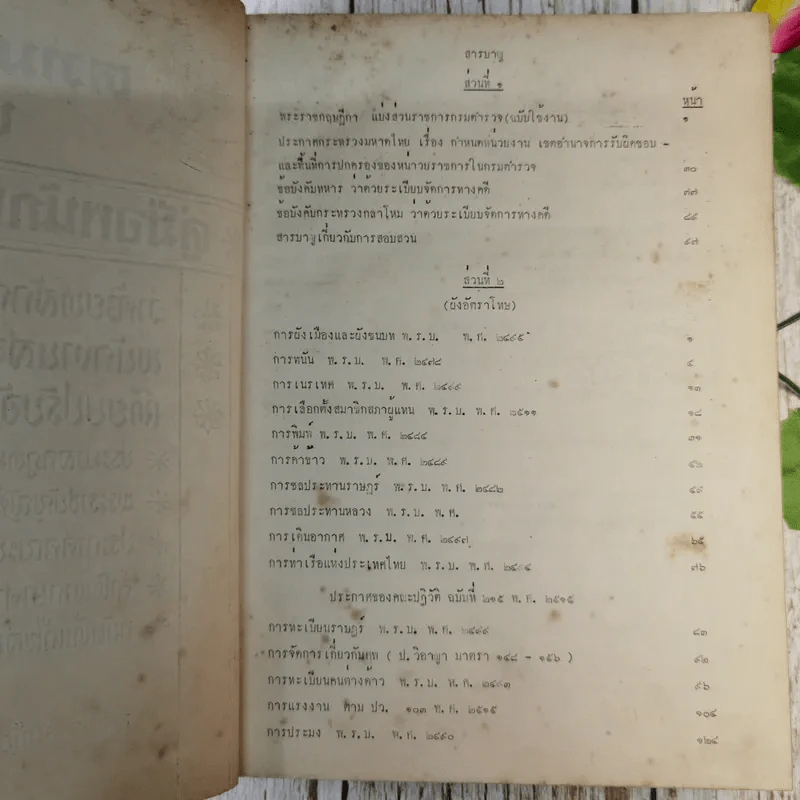 สารบาญ
ส่วนที่ ๑
หน้า
พระราชกฤษฎีกา แบ่งส่วนราชการกรมตำรวจ(ฉบับใช้งาน) ๑
ประกาศกระทรวงมหาดไทย เรื่อง กำหนดหน่วยงาน เขตอำนาจการรับผิดชอบ -
และพื้นที่การปกครองของหน่วยราชการในกรมตำรวจ ๓๐
ข้อบังคับทหาร ว่าด้วยระเบียบจัดการทางคดี ๗๗
ข้อบังคับกระทรวงกลาโหม ว่าด้วยระเบียบจัดการทางคดี ๘๕
สารบาญเกี่ยวกับการสอบสวน ๙๗
ส่วนที่ ๒
(ยังอัตราโทษ)
การผังเมืองและผังชนบท พ.ร.บ. พ.ศ. ๒๔๙๕ ๑
การพนัน พ.ร.บ. พ.ศ. ๒๔๗๘ ๕
การเนรเทศ พ.ร.บ. พ.ศ. ๒๔๙๙ ๑๓
การเลือกตั้งสมาชิกสภาผู้แทน พ.ร.บ. พ.ศ. ๒๕๑๑ ๑๘
การพิมพ์ พ.ร.บ. พ.ศ. ๒๔๘๔ ๓๑
การค้าข้าว พ.ร.บ. พ.ศ. ๒๔๘๙
การชลประทานราษฎร์ พ.ร.บ. พ.ศ. ๒๔๘๒ ๔๙
การชลประทานหลวง พ.ร.บ. พ.ศ. ๕๕
การเดินอากาศ พ.ร.บ. พ.ศ. ๒๔๙๗ ๖๕
การท่าเรือแห่งประเทศไทย พ.ร.บ. พ.ศ. ๒๔๙๔ ๗๖
ประกาศของคณะปฏิวัติ ฉบับที่ ๒๑๕ พ.ศ. ๒๕๑๕
การทะเบียนราษฎร์ พ.ร.บ. พ.ศ. ๒๔๙๙ ๘๓
การจัดการเกี่ยวกับศพ ( ป.วิอาญา มาตรา ๑๔๘ - ๑๕๖ ) ๙๒
การทะเบียนคนต่างด้าว พ.ร.บ. พ.ศ. ๒๔๙๓ ๙๖
การแรงงาน ตาม ปว. ๑๐๓ พ.ศ. ๒๕๑๕ ๑๐๔
การประมง พ.ร.บ. พ.ศ. ๒๔๙๐ ๑๒๔